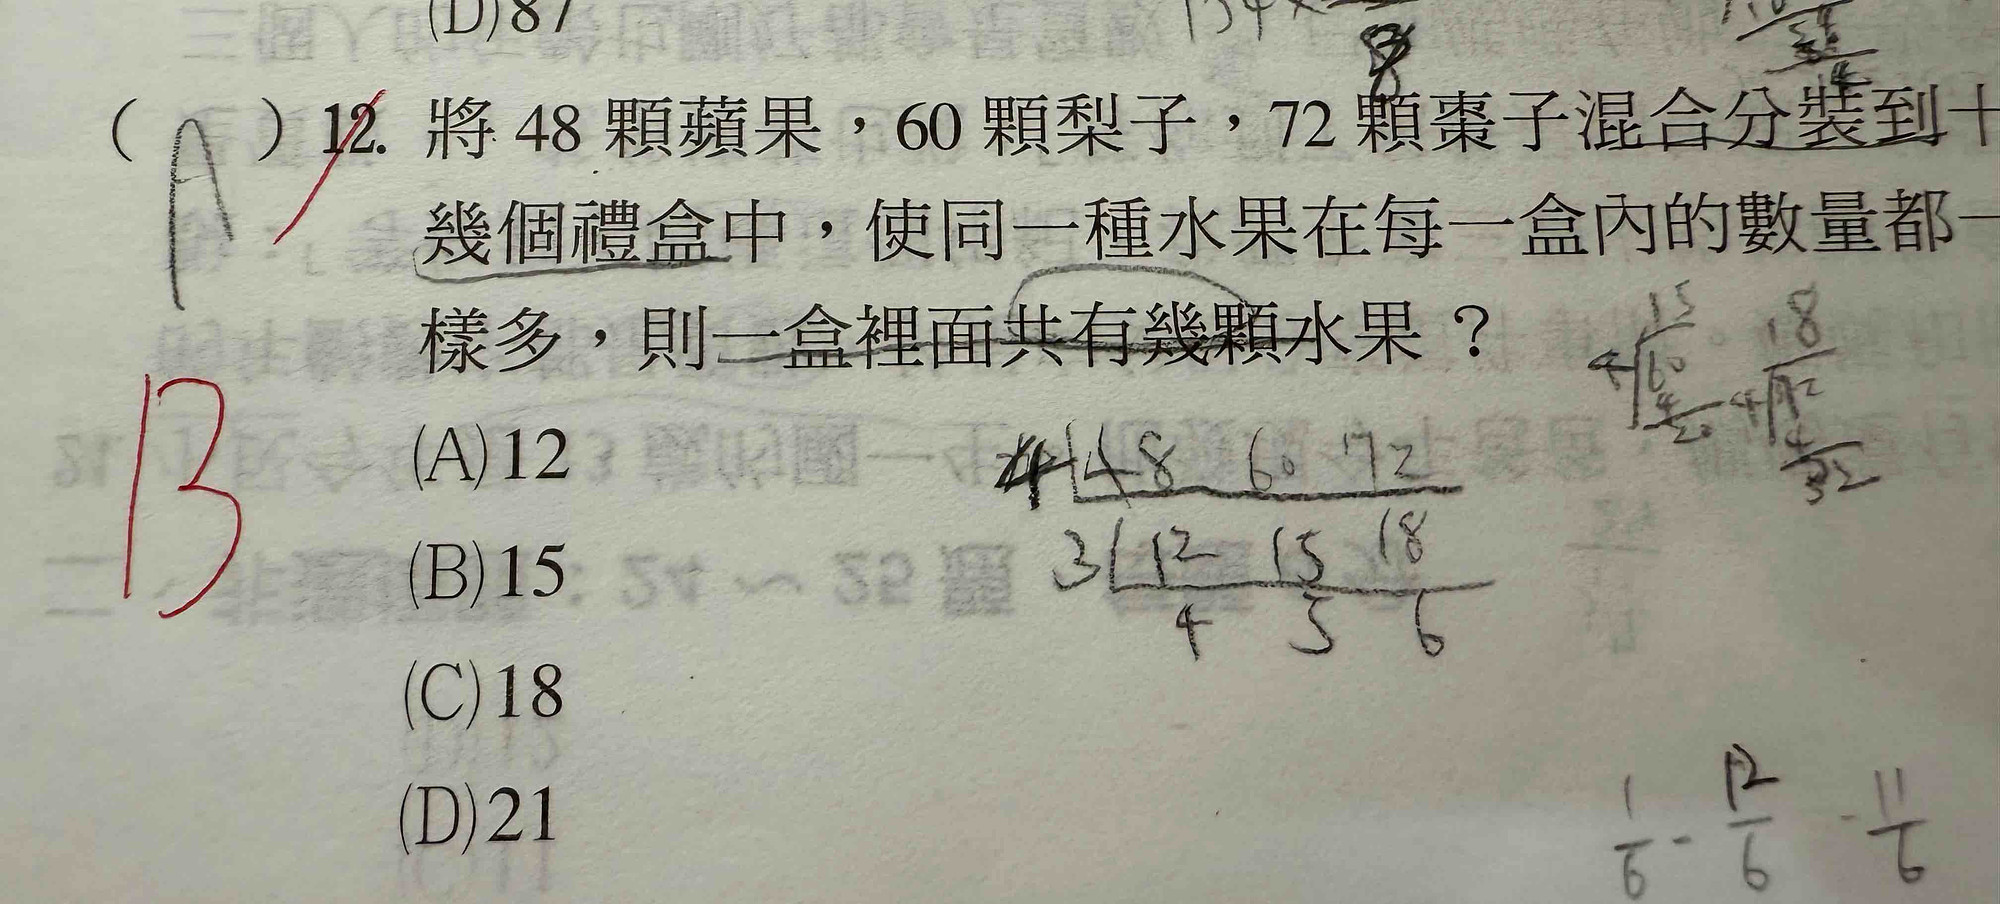 (D)87
( A ) 12. 將 48 顆蘋果，60 顆梨子，72 顆棗子混合分裝到十
幾個禮盒中，使同一種水果在每一盒內的數量都一
樣多，則一盒裡面共有幾顆水果？
B
(A)12
(B)15
(C)18
(D)21
4 48 60 72
3 12 15 18
4 5 6
15
4 60
4
20
18
4 72
4
32
1/6 - 12/6 - 11/6